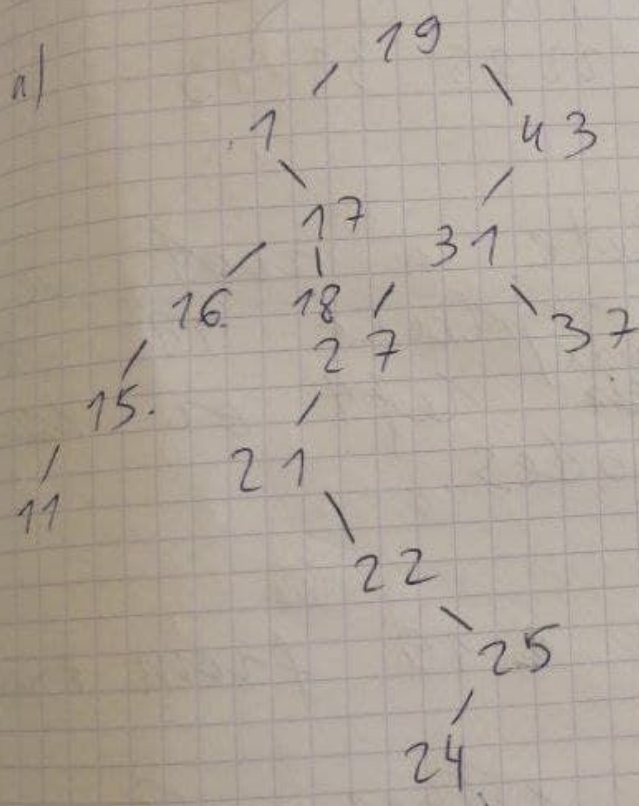 a)
19
1 43
17 31
16 18 37
27
15
21
11
22
25
24